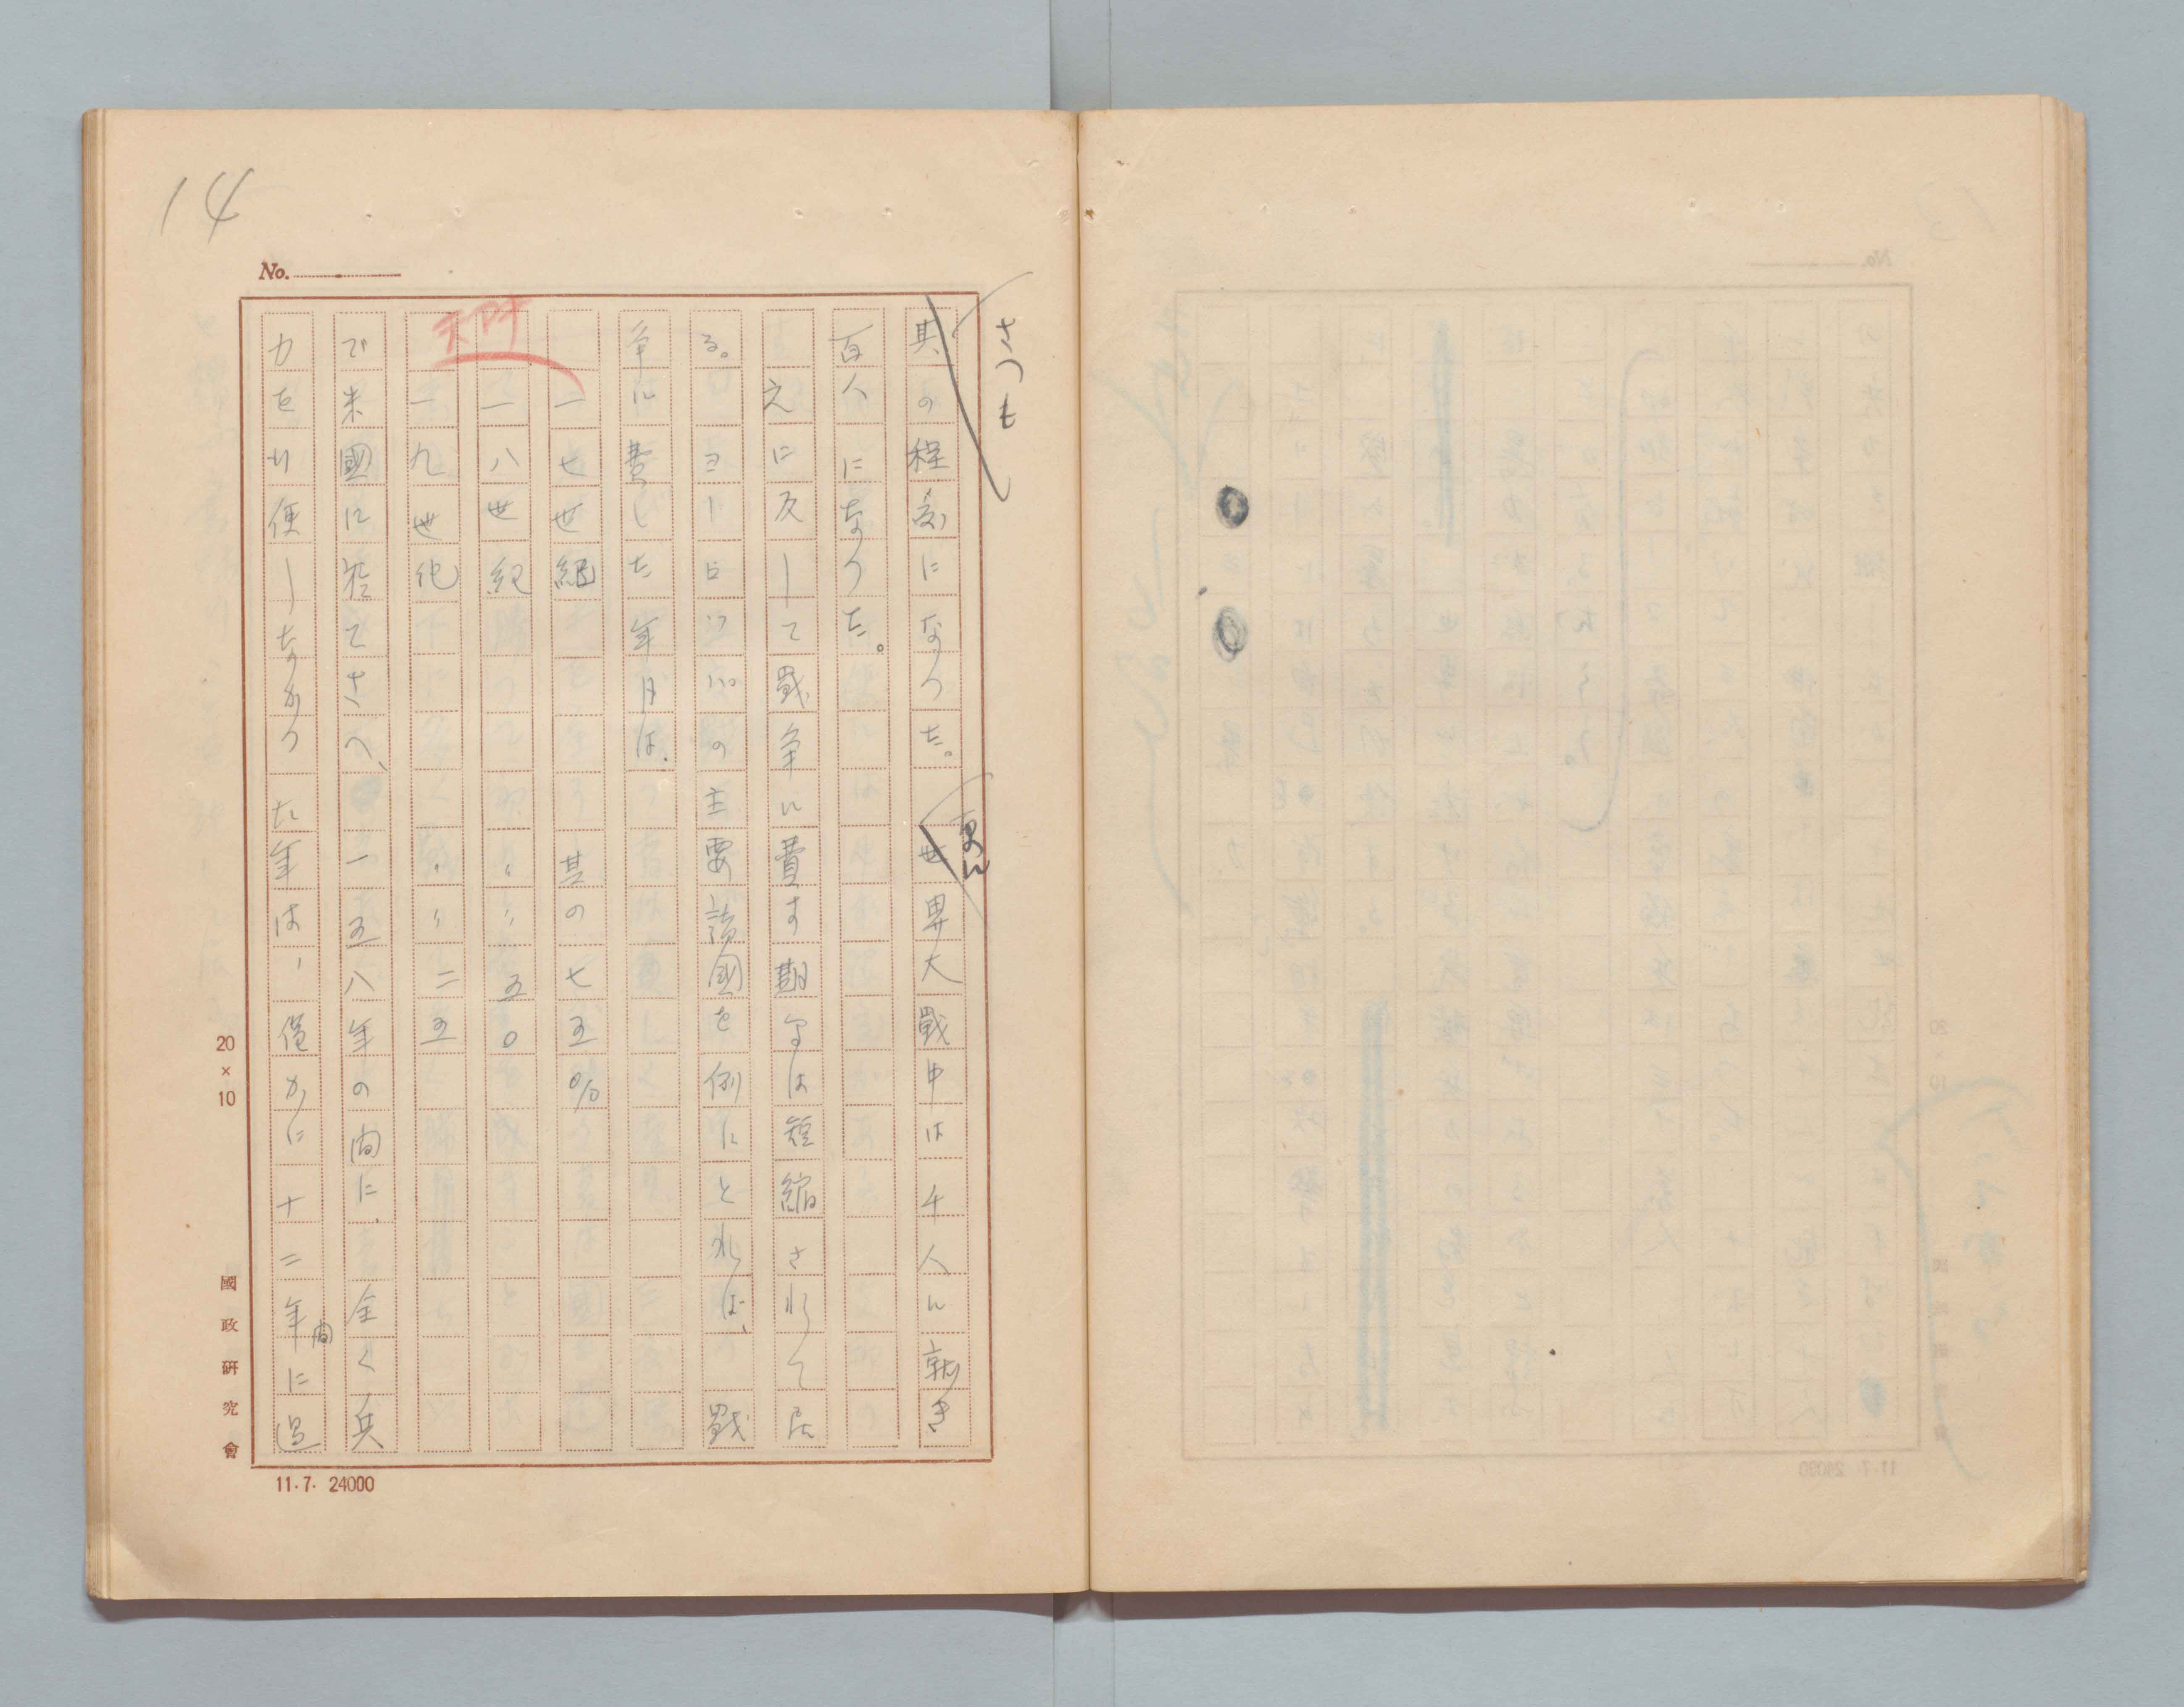 14
No.
さつも
其の程度になつた。世界大戰中は千人に就き
更に
百人になつた。
之に反して戰争に費す期間は短縮されて居
る。ヨーロッパの主要諸國を例にとれば、戰
争に費した年月は、
一七世紀　其の七五%
一八世紀　〃〃五〇
一九世紀　〃〃二五
で米國に於てさへ、一五八年の間に、全く兵
力を使しなかつた年は、僅かに十二年間に過
20×10
國政研究會
11.7. 24000